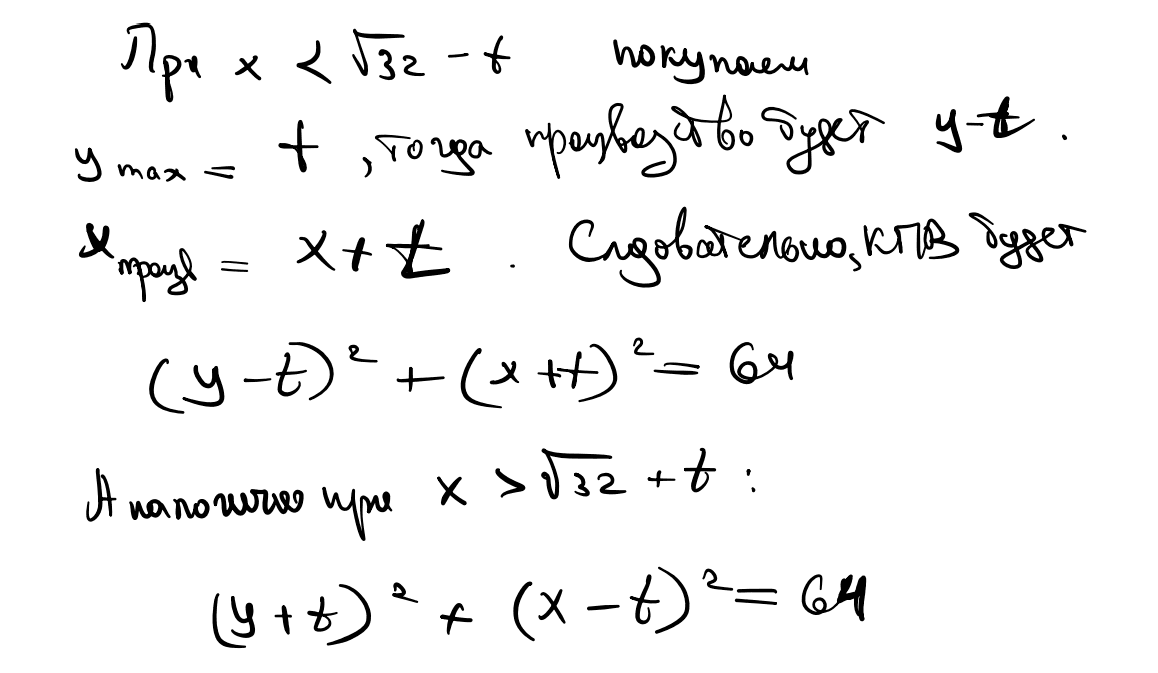 При x < √32 - t покупаем
y max = t , тогда произвдство будет y-t .
x произв = x + t . Следовательно, КПВ будет
(y - t)² + (x + t)² = 64
Аналогично при x > √32 + t :
(y + t)² + (x - t)² = 64